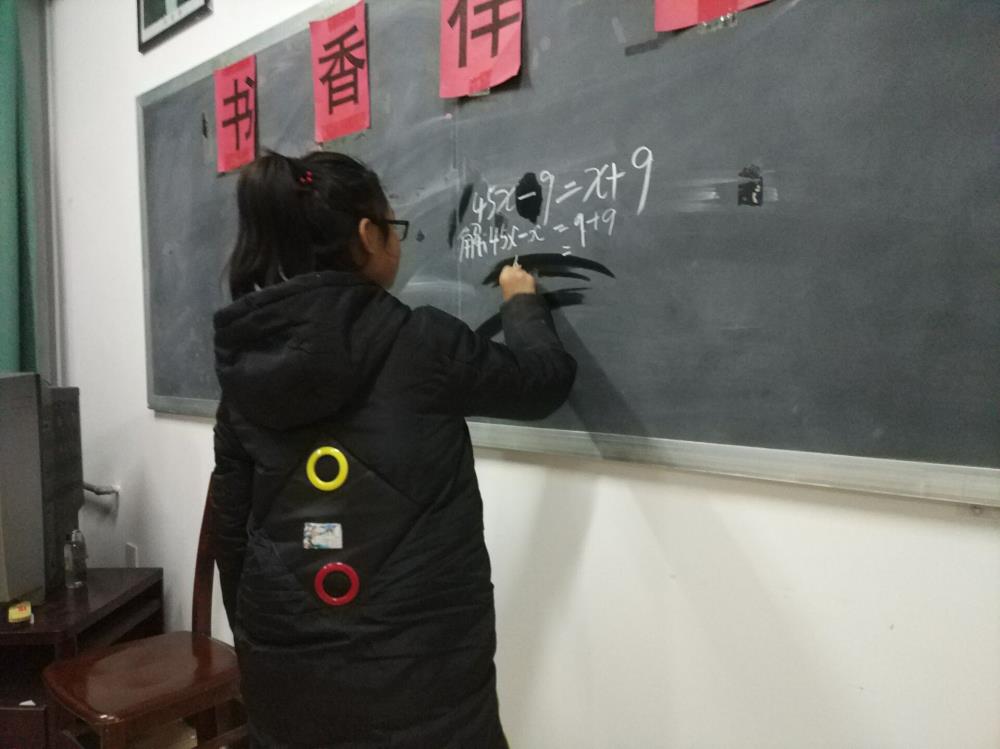 书香伴
45x-9=x+9
解:45x-x=9+9
=